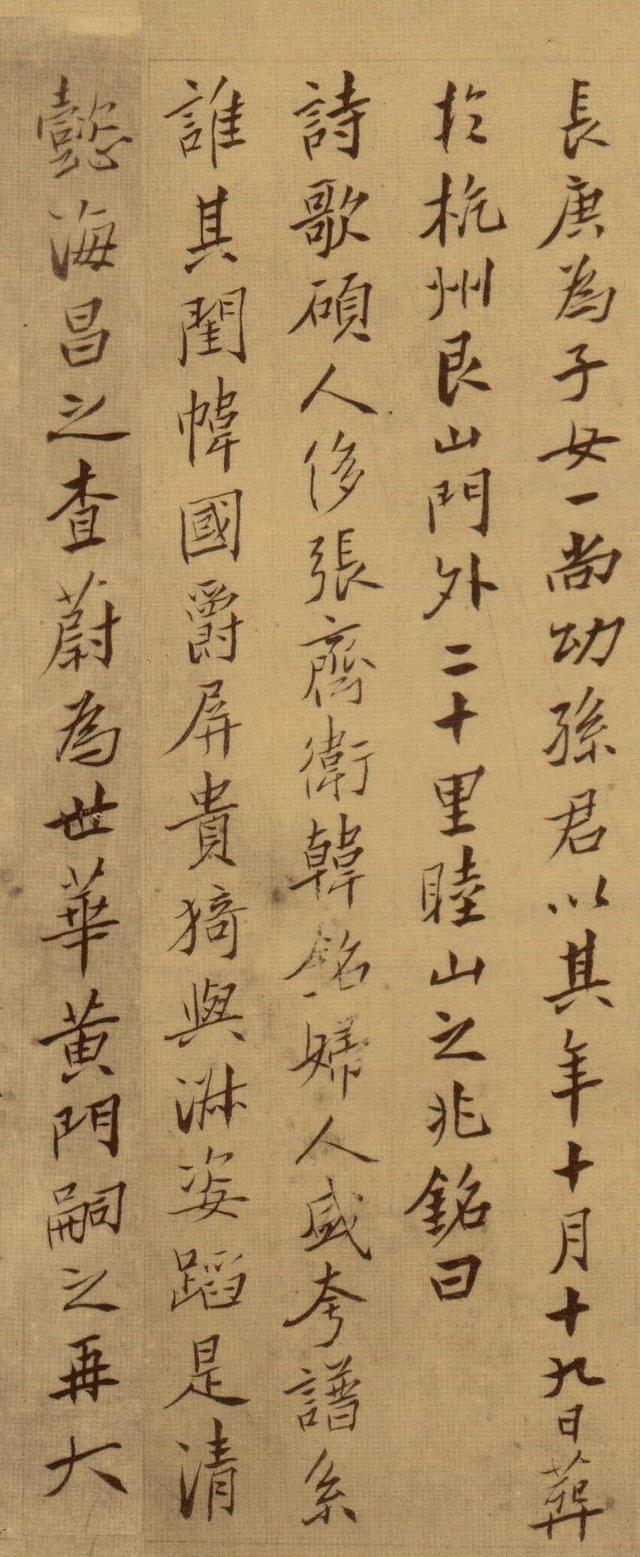 長庚為子女一尚幼孫君以其年十月十九日葬
於杭州艮山門外二十里睦山之兆銘曰
詩歌碩人侈張齊衛韓銘婦人盛夸譜系
誰其閨幃國爵屏貴猗與淋姿蹈是清
懿海昌之查蔚為世華黃門嗣之再大